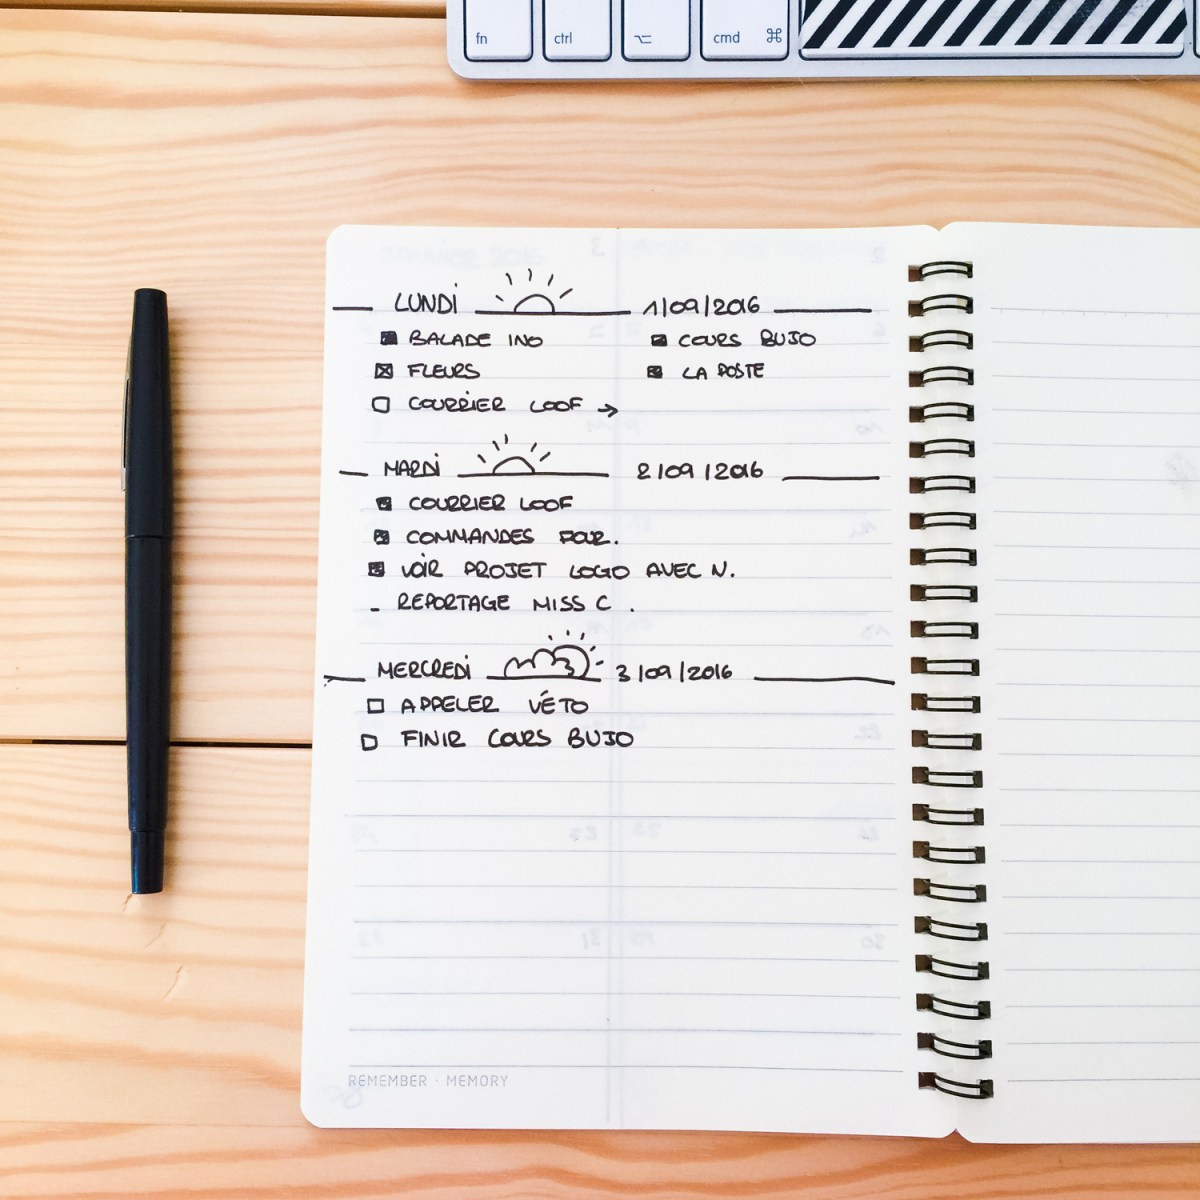 fn ctrl ⌥ cmd ⌘
LUNDI 1/09/2016
BALADE INO COURS BUJO
FLEURS LA POSTE
COURRIER LOOF →
MARDI 2/09/2016
COURRIER LOOF
COMMANDES FOUR.
VOIR PROJET LOGO AVEC N.
- REPORTAGE MISS C.
MERCREDI 3/09/2016
APPELER VÉTO
FINIR COURS BUJO
REMEMBER · MEMORY